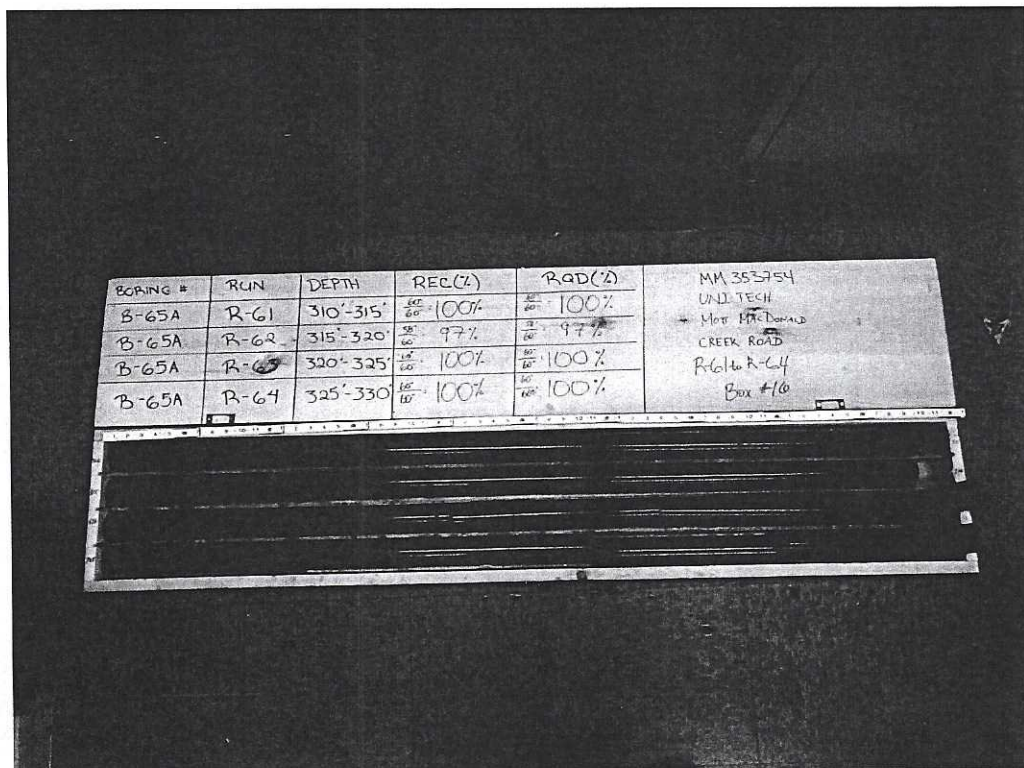 BORING # RUN DEPTH REC(%) RQD(%)
B-65A R-61 310'-315' 60/60 100% 60/60 100%
B-65A R-62 315'-320' 58/60 97% 97%
B-65A R-63 320'-325' 60/60 100% 60/60 100%
B-65A R-64 325'-330' 60/60 100% 60/60 100%
MM 353754
UNI TECH
MOTT MACDONALD
CREEK ROAD
R-61 to R-64
Box #16